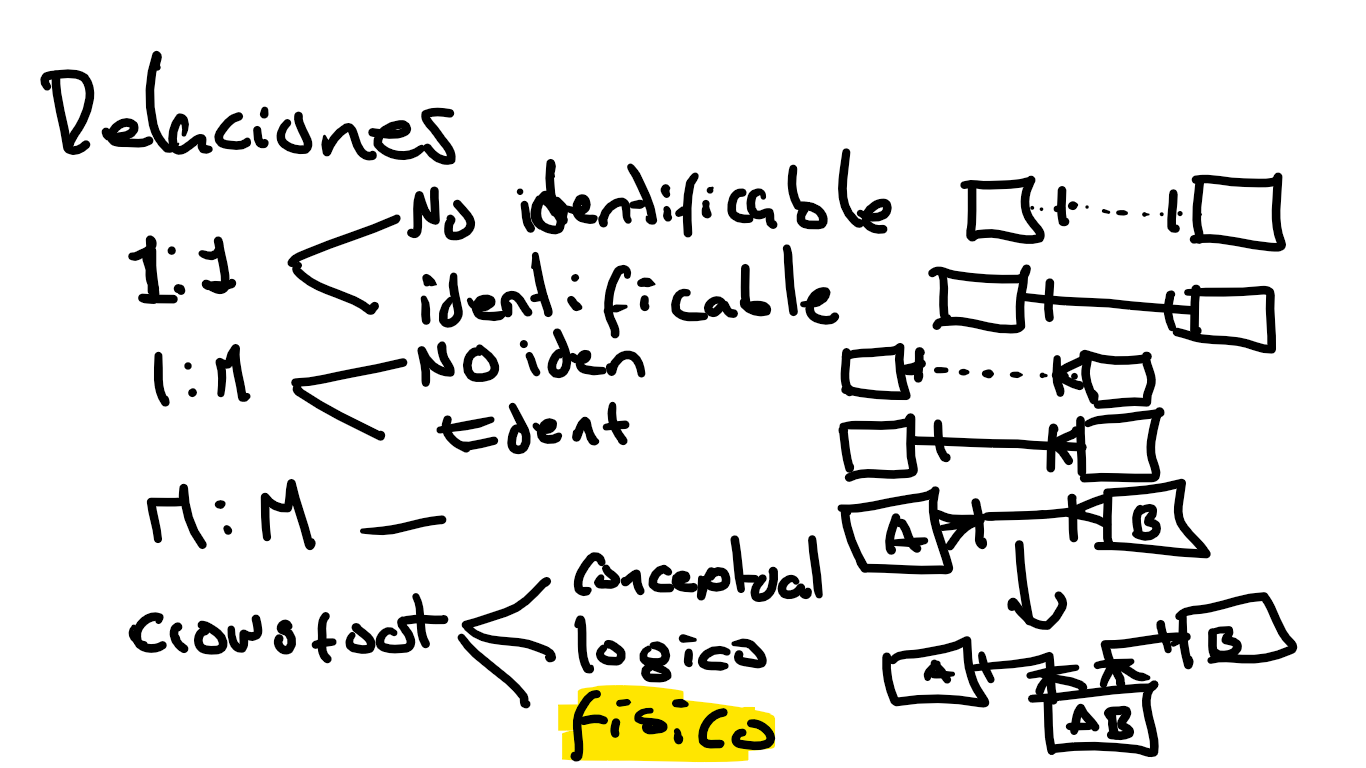 Relaciones
1:1 No identificable
identificable
1:M NO iden
Ident
M:M
A B
crowsfoot conceptual
logico
fisico
A B
AB